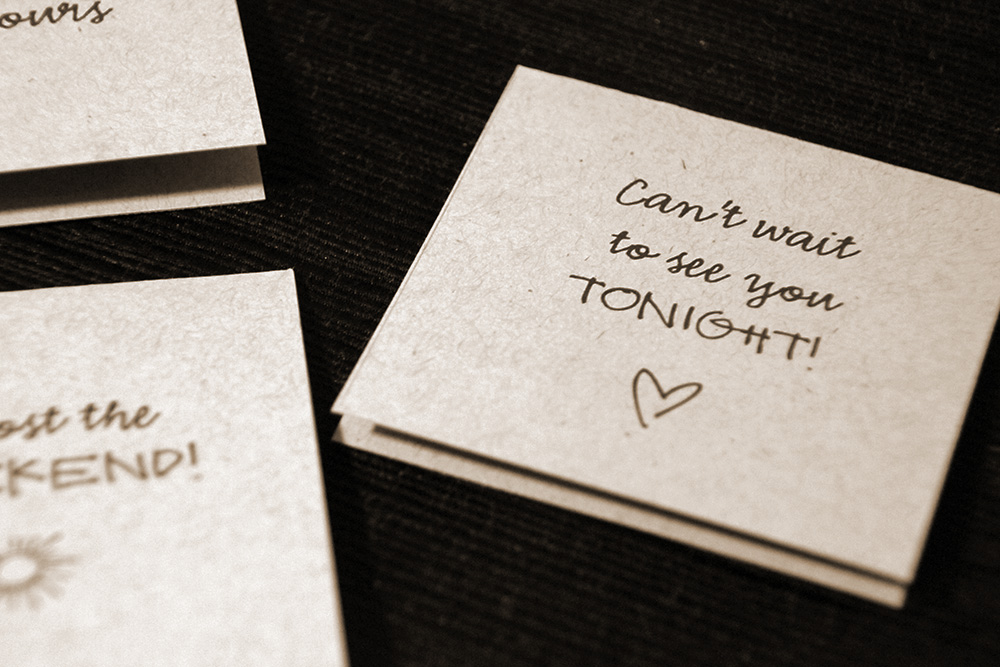 ours
Can't wait
to see you
TONIGHT!
ost the
KEND!